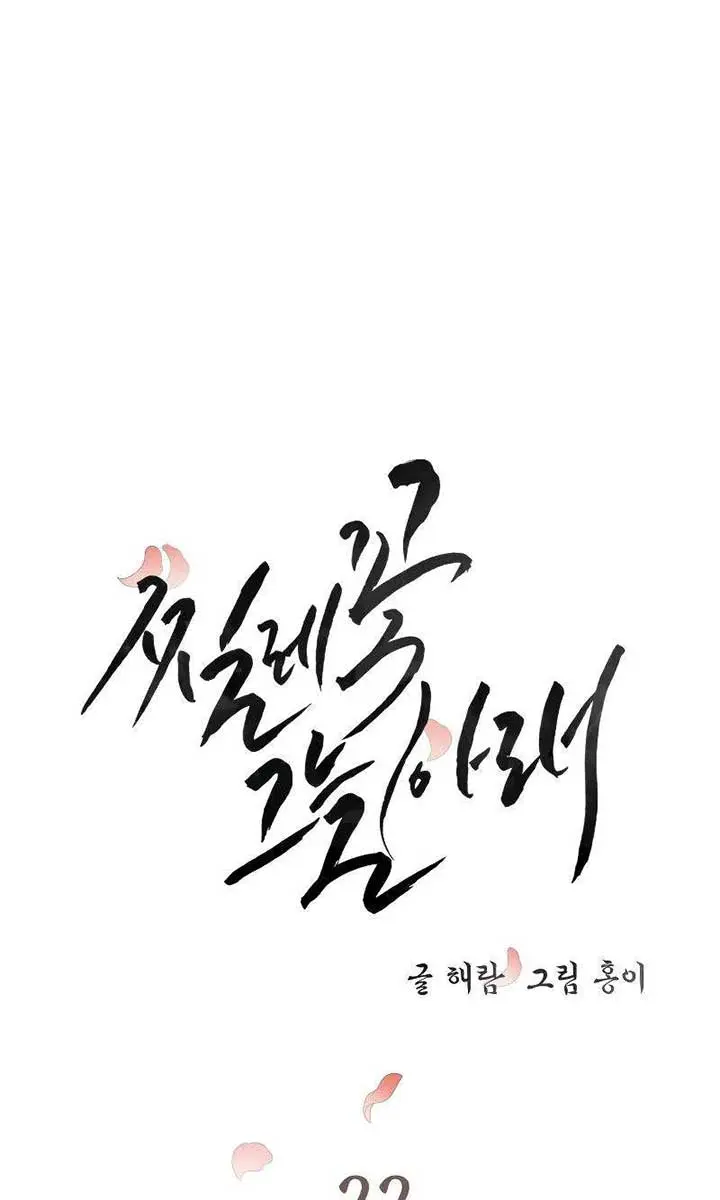 찔레꽃
그늘 아래
글 해람 그림 홍이